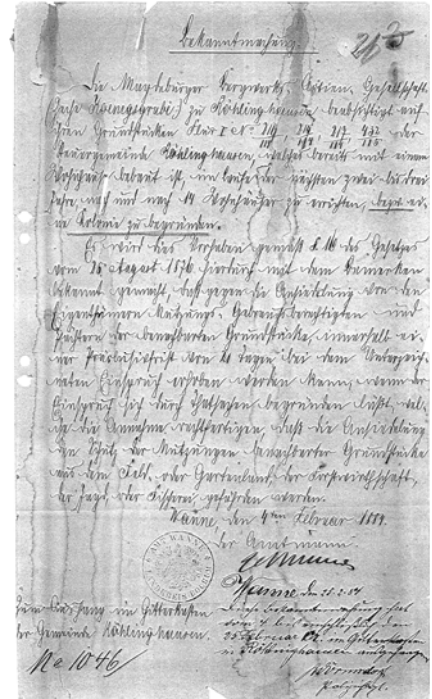 Bekanntmachung.
Die Magdeburger Bergwerks-Actien-Gesellschaft
(Zeche Koenigsgrube) zu Röhlinghausen beabsichtigt auf
ihren Grundstücken Flur I No 219/118, 217 432/115 der
Steuergemeinde Röhlinghausen, welches bereits mit einem
Wohnhause bebaut ist, im Laufe der nächsten zwei bis drei
Jahre, nach und nach 14 Wohnhäuser zu errichten, bezw. ei-
ne Kolonie zu begründen.
Es wird dies Vorhaben gemäß § 16 des Gesetzes
vom 25 August 1876 hierdurch mit dem Bemerken
bekannt gemacht, daß gegen die Ansiedelung von den
Eigenthümern, Nutzungs-, Gebrauchsberechtigten und
Pächtern der benachbarten Grundstücke, innerhalb ei-
ner Präclusivfrist von 21 Tagen bei dem Unterzeich-
neten Einspruch erhoben werden kann, wenn der
Einspruch sich durch Thatsachen begründen läßt, wel-
che die Annahme rechtfertigen, daß die Ansiedelung
den Schutz der Nutzungen benachbarter Grundstücke
aus dem Feld- oder Gartenbau, der Forstwirthschaft,
der Jagd, oder Fischerei, gefährden werde.
Wanne, den 4ten Februar 1889.
Der Amtmann:
AMT WANNE
LANDKREIS BOCHUM
Zum Aushang im Gitterkasten
der Gemeinde Röhlinghausen.
No 1046
Wanne, den 28.2.
Diese Bekanntmachung hat
vom 4 bis einschließlich den
25 Februar im Gitterkasten
in Röhlinghausen ausgehangen